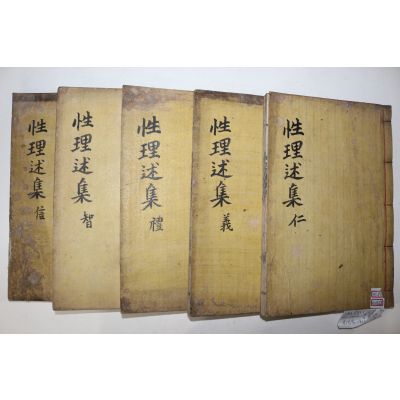 性理述集 仁
性理述集 義
性理述集 禮
性理述集 智
性理述集 信